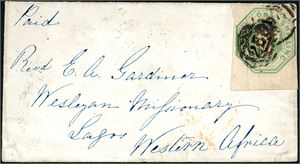 Paid
Revd E. A. Gardiner
Wesleyan Missionary
Lagos
Western Africa